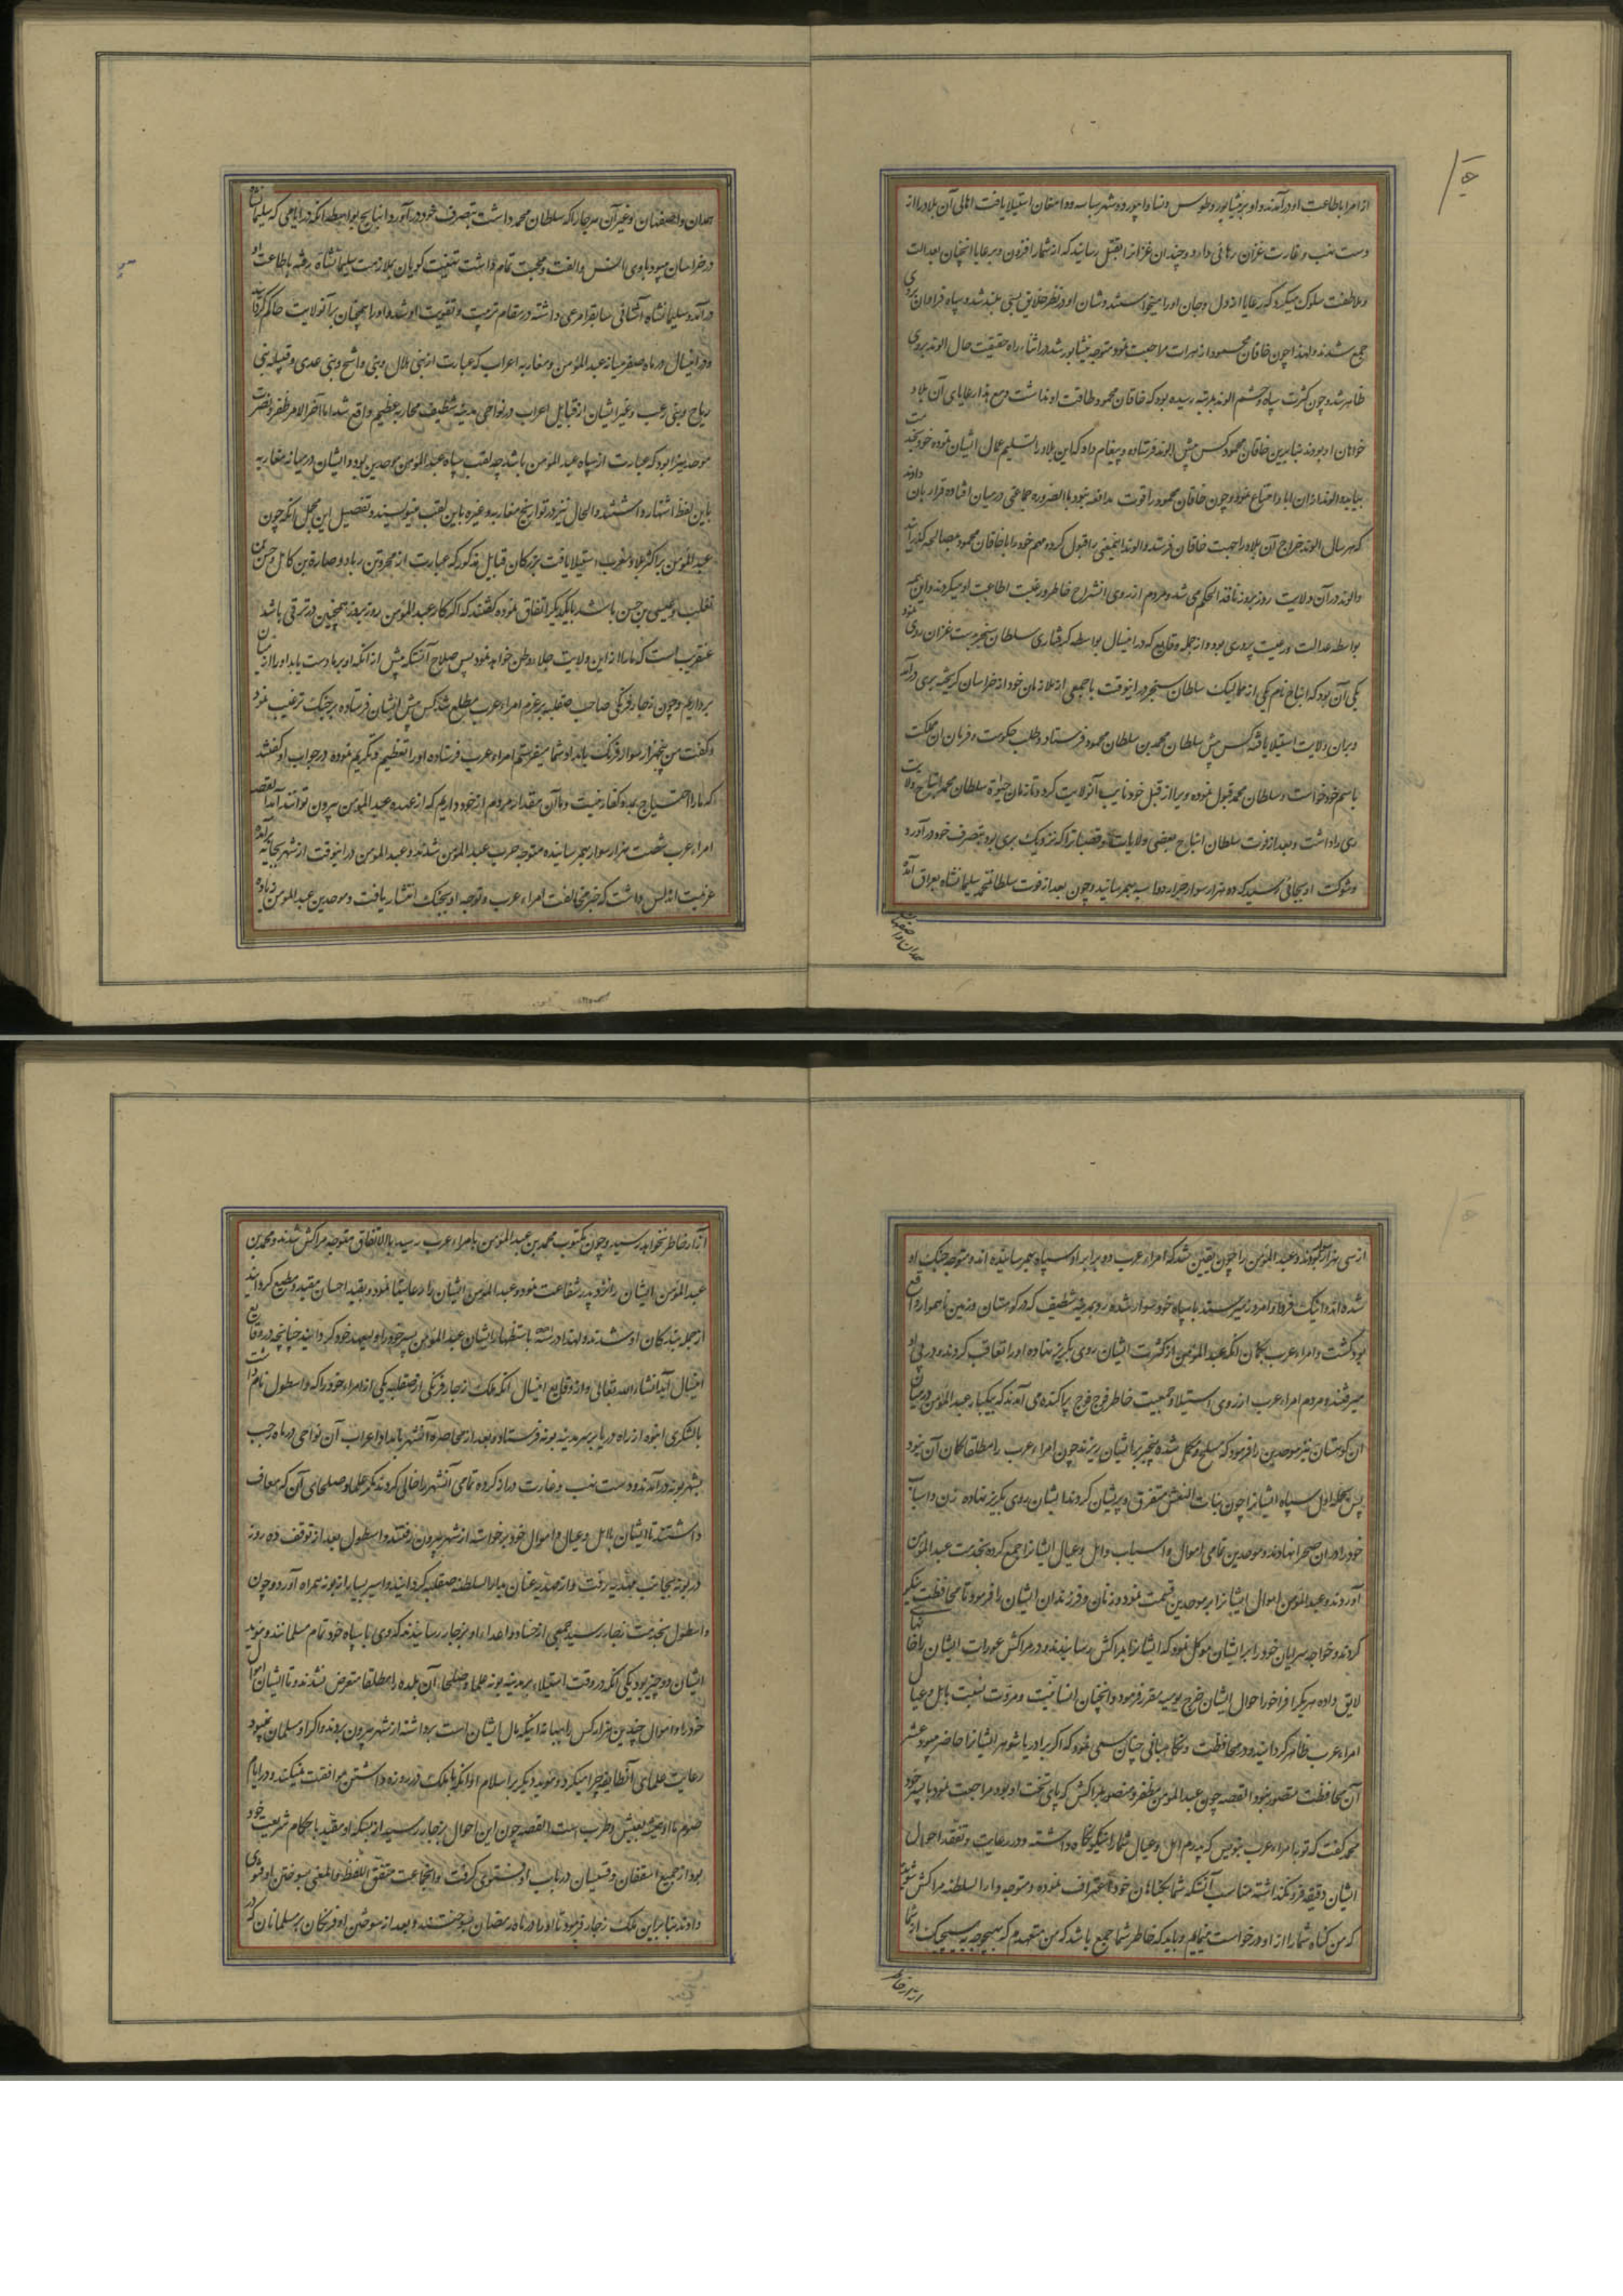 از امرا باطاعت او درآمدند و او بر نیشابور و طوس و نسا و ابیورد و شهرستانه و دامغان استیلا یافت اهالی آن بلاد را از
دست نهب و غارت غزان رهائی داد و چندان غزانرا بقتل رسانید که از شمار افزون و برعایا انچنان بعدالت
و ملاطفت سلوک میکرد که رعایا از دل و جان او را میخواستند و شان او در نظر خلایق بسی بلند شد و سپاه فراوان بروی
جمع شدند و لهذا چون خاقان محمود از هرات مراجعت نمود و متوجه نیشابور شد در اثناء راه حقیقت حال الوند بروی
ظاهر شد و چون کثرت سپاه و حشم الوند بمرتبه رسیده بود که خاقان محمود طاقت او نداشت و مع هذا رعایای آن بلاد
خواهان او بودند بنابرین خاقان محمود کس پیش الوند فرستاده و پیغام داد که این بلاد را تسلیم عمال ایشان نموده خود بخدمت
بیاید و الوند ازان ابا و امتناع نمود و چون خاقان محمود را قوت مدافعه نبود بالضروره جماعتی در میان افتاده قرار بان دادند
که هر سال الوند خراج آن بلاد را جهت خاقان فرستد و الوند اینمعنی را قبول کرده مهم خود را با خاقان محمود بمصالحه گذرانید
و الوند در آن ولایت روز بروز نافذ الحکم می شد و مردم از روی انشراح خاطر و رغبت اطاعت او میکردند و این همه
بواسطه عدالت و رعیت پروری بود و از جمله وقایع که در اینسال بواسطه گرفتاری سلطان سنجر بدست غزان روی نمود
یکی آن بود که اینانج نام یکی از ممالیک سلطان سنجر در اینوقت با جمعی از ملازمان خود از خراسان گریخته بری درآمد
و بران ولایت استیلا یافته کس پیش سلطان محمد بن سلطان محمود فرستاد و طلب حکومت و فرمان ان مملکت
باسم خود خواست و سلطان محمد قبول نموده ویرا از قبل خود نایب آنولایت کرد و تا زمان حیوة سلطان محمد اینانج ولایت
ری را داشت و بعد از فوت سلطان اینانج بعضی ولایات و قصباترا که نزدیک بری بود بتصرف خود درآورد
و شوکت او بجائی رسید که ده هزار سوار جرار دو اسپه بهم رسانید و چون بعد از فوت سلطانمحمد سلیمانشاه بعراق آمده
همدان و اصفهان
همدان و اصفهان و غیر آن هر جا را که سلطان محمد داشت بتصرف خود درآورد اینانج بواسطه انکه در ایامی که سلیمانشاه
در خراسان میبود با وی انس و الفت و محبت تمام داشت تهنیت گویان بملازمت سلیمانشاه رفته باطاعت او
درآمد و سلیمانشاه آشنائی سابقرا مرعی داشته در مقام تربیت و تقویت او شد و او را همچنان بر آنولایت حاکم گردانید
و در اینسال در ماه صفر میانه عبد المؤمن و مغاربه اعراب که عبارت از بنی هلال و بنی واشج و بنی عدی و قبیله بنی
ریاح و بنی رعب و غیر ایشان از قبایل اعراب در نواحی مدینه شطیف محاربه عظیم واقع شد اما آخر الامر ظفر و نصرت
موحدینرا بود که عبارت از سپاه عبد المؤمن باشد چه لقب سپاه عبد المؤمن موحدین بود و ایشان در میانه مغاربه
باین لفظ اشتهار داشتند و الحال نیز در تواریخ مغاربه و غیره باین لقب مینویسند و تفصیل این مجمل آنکه چون
عبد المؤمن بر اکثر بلاد مغرب استیلا یافت بزرگان قبایل مذکور که عبارت از محرز بن زیاد و صاره بن کامل و حسن بن
ثعلب و عیسی بن حسن باشند با یکدیگر اتفاق نموده گفتند که اگر کار عبد المؤمن روز بروز همچنین در ترقی باشد
عنقریب است که ما را از این ولایت جلاء وطن خواهد نمود پس صلاح آنستکه پیش از انکه او بر ما دست یابد او را از میان
برداریم و چون زجار فرنگی صاحب صقلیه بر عزم امراء عرب مطلع شد کس پیش ایشان فرستاده بر جنک ترغیب نمود
و گفت من پنجهزار سوار فرنک بامداد شما میفرستم امراء عرب فرستاده او را تعظیم و تکریم نموده در جواب او گفتند
که ما را احتیاج بمدد کفار نیست و ما آن مقدار مردم از خود داریم که از عهده عبد المؤمن بیرون توانند آمد القصه
امراء عرب شصت هزار سوار بهمرسانیده متوجه حرب عبد المؤمن شدند و عبد المؤمن در اینوقت از شهر بجایه برآمده
عزیمت اندلس داشت که خبر مخالفت امراء عرب و توجه او بجنک انتشار یافت و موحدین عبد المؤمن زیاده
از سی هزار سوار نبودند و عبد المؤمن را چون یقین شد که امراء عرب دو برابر او سپاه بهمرسانیده اند و متوجه جنک او
شده اند و اینک فردا و امروز میرسند با سپاه خود سوار شده رو بمدینه شطیف که در کوهستان و زمین ناهموار واقع
بود گشت و امراء عرب بگمان انکه عبد المؤمن از کثرت ایشان روی بگریز نهاده او را تعاقب کردند و در پی او
میرفتند و مردم امراء عرب از روی استیلا و جمعیت خاطر فوج فوج پراکنده می آمدند که بیکبار عبد المؤمن در میان
ان کوهستان نیز موحدین را فرمود که مسلح و مکمل شده بیخبر بر ایشان ریزند چون امراء عرب را مطلقا گمان آن نبود
پس بحمله اول سپاه ایشانرا چون بنات النعش متفرق و پریشان کردند ایشان روی بگریز نهاده زن و اسباب
خود را دران صحرا نهادند و موحدین تمامی اموال و اسباب و اهل و عیال ایشانرا جمع کرده بخدمت عبد المؤمن
آوردند و عبد المؤمن اموال ایشانرا بر موحدین قسمت نمود و زنان و فرزندان ایشان را فرمود تا محافظت نیکو
کردند و خواجه سرایان خود را بر ایشان موکل نمود که ایشانرا بمراکش رسانیدند و در مراکش عورات ایشان را خانهای
لایق داده هر یکرا فراخور احوال ایشان خرج یومیه مقرر فرمود و انچنان انسانیت و مروت نسبت باهل و عیال
امراء عرب ظاهر گردانید و در محافظت و نگاهبانی چنان سعی نمود که اگر برادر یا شوهر ایشانرا حاضر میبود عشر
آن محافظت متصور نبود القصه چون عبد المؤمن مظفر و منصور بمراکش که پای تخت او بود مراجعت نمود با پسر خود
محمد گفت که تو با امراء عرب بنویس که پدرم اهل و عیال شما را نیکو نگاه داشته و در رعایت و تفقد احوال
ایشان دقیقه فرو نگذاشته مناسب آنستکه شما بگناهان خود اعتراف نموده و متوجه دار السلطنه مراکش شوید
که من گناه شما را از او درخواست مینمایم و باید که خاطر شما جمع باشد که من متعهدم که بهیچوجه بهیچیک از شما
ازار خاطر
آزار خاطر نخواهد رسید و چون مکتوب محمد بن عبد المؤمن بامراء عرب رسید بالاتفاق متوجه مراکش شدند و محمد بن
عبد المؤمن ایشان را نزد پدر شفاعت نمود و عبد المؤمن ایشان را رعایتها نمود و بقید احسان مقید و مطیع گردانید
از جمله بندگان او شدند و لهذا در باستظهار ایشان عبد المؤمن پسر خود را ولیعهد خود گردانید چنانچه در وقایع
اینسال آید انشاء الله تعالی و از وقایع اینسال آنکه ملک زجار فرنگی از صقلیه یکی از امراء خود را که واسطول نام داشت
با لشکری انبوه از راه دریا بر سر مدینه بونه فرستاد و بعد از محاصره آنشهر بامداد اعراب آن نواحی در ماه رجب
بشهر بونه درآمدند و دست نهب و غارت دراز کرده تمامی آنشهر را خالی کردند مگر علما و صلحای آن که معاف
داشتند تا ایشان با اهل و عیال و اموال خود برخواسته از شهر بیرون رفتند و اسطول بعد از توقف ده روز
در بونه بجانب مهدیه رفت و از مهدیه عنان بدار السلطنه صقلیه گردانید و اسیر بسیار از بونه همراه آورد و چون
واسطول بخدمت زجار رسید جمعی از حساد و اعداء او بزجار رسانیدند که وی با سپاه خود تمام مسلمانند و موید
ایشان دو چیز بود یکی آنکه در وقت استیلاء بر مدینه بونه علما و صلحاء آن بلده را مطلقا متعرض نشدند و تا ایشان اموال
خود را و اموال چندین هزار کس را ببهانه اینکه مال ایشان است برداشته از شهر بیرون بردند و اگر او مسلمان نمیبود
رعایت علمای آنطایفه چرا میکرد و موید دیگر بر اسلام او انکه با ملک در روزه داشتن موافقت نمیکند و در ایام
صوم ما او همیشه بعیش و طرب است القصه چون این احوال بزجار رسید از بسکه او مقید باحکام شریعت خود
بود از جمیع اسقفان و قسیسان در باب او فتوی گرفت و انجماعت متفق اللفظ و المعنی بسوختن او فتوی
دادند بنابراین ملک زجار فرمود تا او را در ماه رمضان بسوختند و بعد از سوختن او فرنگان بر مسلمانان که